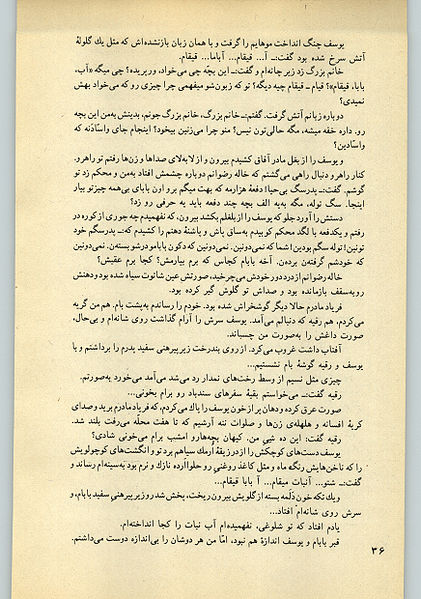 یوسف چنگ انداخت موهایم را گرفت و با همان زبان بازنشده‌اش که مثل یك گلولهٔ
آتش سرخ شده بود گفت:ــ آ... قیقام... آباما... قیقام.
خانم بزرگ زد زیر چانه‌ام و گفت:ــ این بچّه چی می‌خواد، وربریده؟ چی میگه «آب،
بابا، قیقام»؟ قیام ـ قیقام چیه دیگه؟ تو که زبون‌شو میفهمی چرا چیزی رو که می‌خواد بهش
نمیدی؟
دوباره زبانم آتش گرفت. گفتم:ــ خانم بزرگ، خانم بزرگ جونم، بدینش به‌من این بچه
رو. داره خفه میشه، مگه حالی‌تون نیس؟ منو چرا می‌زنین بیخود؟ اینجام جای واسّادنه که
واسّادین؟
و یوسف را از بغل مادر آفاق کشیدم بیرون و از لابه‌لای صداها و زن‌ها رفتم تو راهرو.
کنار راهرو دنبال راهی می‌گشتم که خاله رضوانم دوباره چشمش افتاد به‌من و محکم زد تو
گوشم. گفت:ــ پدرسگ بی‌حیا! دفعهٔ هزارمه که بهت میگم برو اون بابای بی‌همه چیزتو بیار
اینجا. سگ توله، مگه به‌یه الف بچه چند دفعه باید یه حرفی رو زد؟
دستش را آورد جلو که یوسف را از بغلم بکشد بیرون، که نفهمیدم چه جوری از کوره در
رفتم و یکدفعه با لگد محکم کوبیدم به‌ساق پاش و پاشنهٔ دهنم را کشیدم که:ــ پدرسگم خود
تونین! توله سگم بودین! شما که نمی‌دونین. نمی‌دونین که دکون بابامو درشو بسته‌ن. نمی‌دونین
که خودشم گرفته‌ن برده‌ن. آخه بابام کجاس که برم بیارمش؟ کجا برم عقبش؟
خاله رضوانم از درد دور خودش می‌چرخید، صورتش عین شاتوت سیاه شده بود و دهنش
روبه‌سقف بازمانده بود و صداش تو گلوش گیر کرده بود.
فریاد مادرم حالا دیگر گوشخراش شده بود. خودم را رساندم به‌پشت بام. هم من گریه
می‌کردم، هم رقیه که دنبالم می‌آمد. یوسف سرش را آرام گذاشت روی شانه‌ام و بی‌حال،
صورت داغش را به‌صورت من چسباند.
آفتاب داشت غروب می‌کرد. از روی بندرخت زیرپیرهنی سفید پدرم را برداشتم و با
یوسف و رقیه گوشهٔ بام نشستیم...
چیزی مثل نسیم از وسط رخت‌های نمدار رد می‌شد می‌آمد می‌خورد به‌صورتم.
رقیه گفت:ــ می‌خواستم بقیهٔ سفرهای سندباد رو برام بخونی...
صورت عرق کرده و دهان پر از خون یوسف را پاك می‌کردم، که فریاد مادرم برید و صدای
گریهٔ افسانه و هلهلهٔ زن‌ها و صلوات ننه آرشیم که تا هفت محلّه می‌رفت بلند شد.
رقیه گفت: این ده شبی من. کیهان بچه‌هارو امشب برام می‌خونی شادی؟
یوسف دست‌های کوچکش را از درز یقهٔ اُرمك سیاهم برد تو و انگشت‌های کوچولویش
را که ناخن‌هایش رنگه ماه و مثل کاغذ روغنی رو حلوا اَرده نازك و نرم بود به‌سینه‌ام رساند و
گفت:ــ شتو... آنبات میقام... آ بابا قیقام...
ویك تکه خون دَلَمه بسته از گلویش بیرون ریخت، پخش شد رو زیرپیرهنی سفید بابام، و
سرش روی شانه‌ام افتاد...
یادم افتاد که تو شلوغی، نفهمیده‌ام آب نبات را کجا انداخته‌ام.
قبر بابام و یوسف اندازهٔ هم نبود، امّا من هر دوشان را بی‌اندازه دوست می‌داشتم.
۳۶